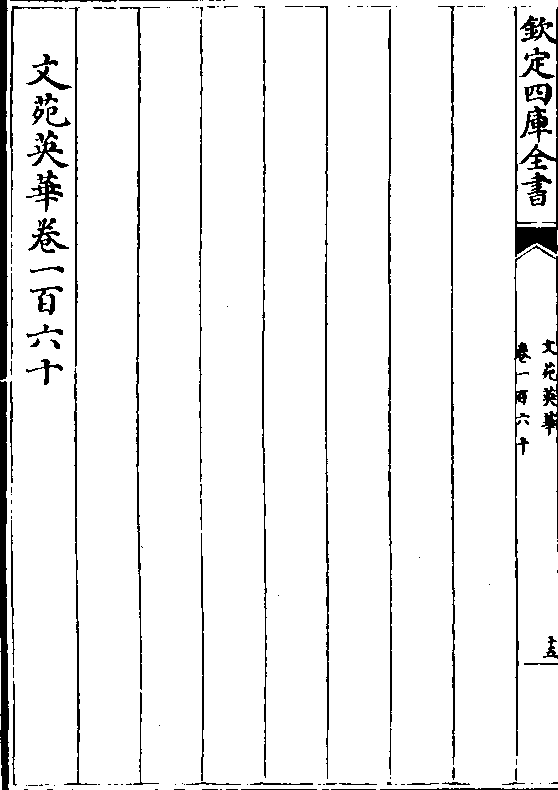 欽定四庫全書
文苑英華
卷一百六十
十五
文苑英華卷一百六十